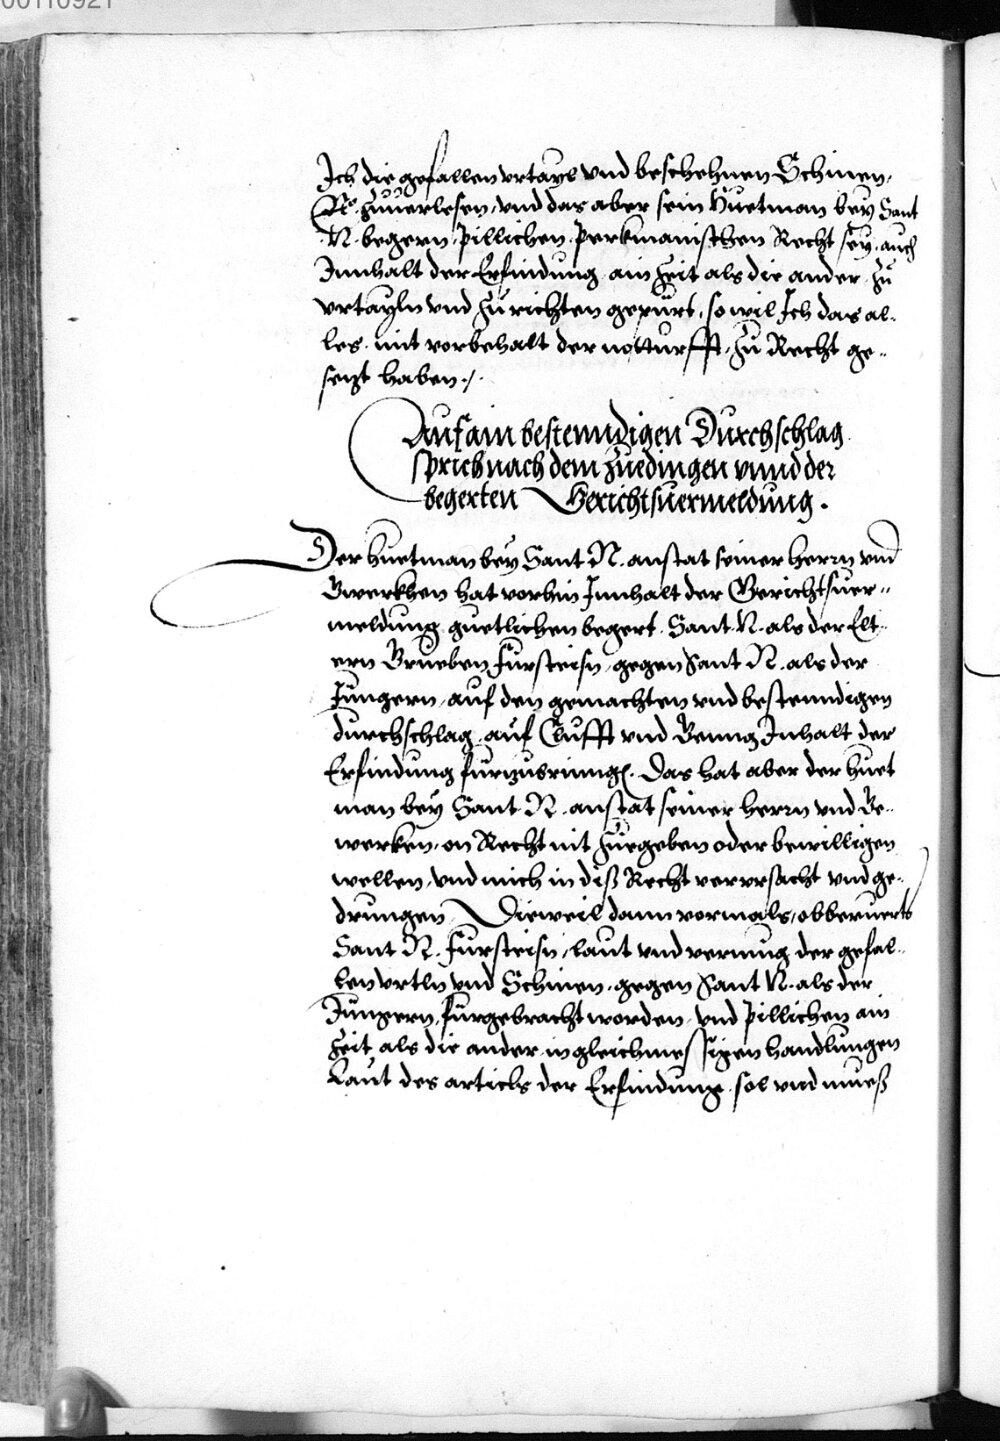 00110921
Ich die gefallen vrtayl vnd beschehnen Schinen,
N° zuuerlesen, vnd das aber sein Huetman bey Sant
N. begern, pillichen perkmanischen Recht sey, auch
Innhalt der Erfindung ain Zeit als die ander zu
vrtayln vnd zu richten gepürt, so wil Ich das al-
les mit vorbehalt der notturfft, zu Recht ge-
sezt haben ./.
Auf ain bestenndigen Durchschlag
sprich nach dem Zuedingen vnnd der
begerten Gerichtsuermeldung.
Der Huetman bey Sant N. anstat seiner Herrn vnd
Gwerkhen hat vorhin Innhalt der Gerichtsuer-
meldung guetlichen begert. Sant N. als der Elt-
ern Grueben Fürsteisn, gegen Sant N. als der
Jungern, auf den gemachten vnd bestenndigen
durchschlag, auf Clufft vnd Genng Inhalt der
Erfindung. Das hat aber der Huet
man bey Sant N. anstat seiner Herrn vnd Ge-
werken, on Recht nit Zuegeben oder bewilligen
wellen, vnd mich in diß Recht verursacht vnd ge-
drungen, Dieweil dann vormals, obberuerts
Sant N. Fürsteisn, laut vnd vermug der gefal-
len vrtln vnd Schinen, gegen Sant N. als der
Jungern, fürgebracht worden, vnd pillichen ain
Zeit als die ander, in gleichmessigen handlungen
Laut des articls der Erfindung, sol vnd mueß